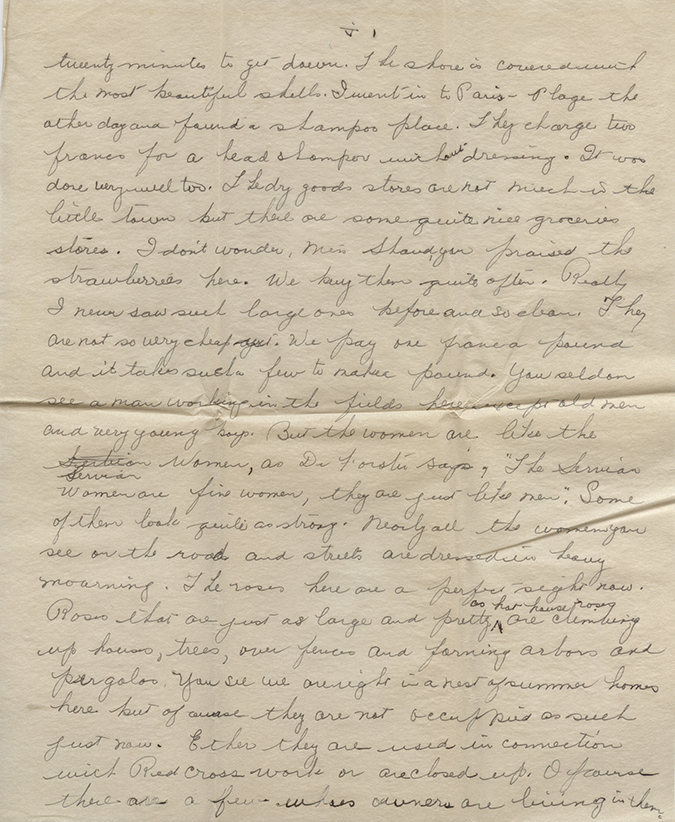 twenty minutes to get down. The shore is covered with
the most beautiful shells. I went in to Paris-Plage the
other day and found a shampoo place. They charge two
francs for a head shampoo without dressing. It was
done very well too. The dry goods stores are not much in the
little town but there are some quite nice groceries
stores. I don't wonder, Miss you praised the
strawberries here. We buy them quite often. Really
I never saw such large ones before and so clean. They
are not so very cheap. We pay one franc a pound
and it takes such a few to make a pound. You seldom
see a man working in the fields here except old men
and very young boys. But the women are like the
Servian
Women, as Dr Forster says, "The Servian
Women are fine women, they are just like men". Some
of them look quite as strong. Nearly all the women you
see on the roads and streets are dressed in heavy
mourning. The roses here are a perfect sight now.
as hot house roses
Roses that are just as large and pretty are climbing
up houses, trees, over fences and forming arbors and
pergolas. You see we are right in a nest of summer homes
here but of course they are not occuppied as such
just now. Ether they are used in connection
with Red Cross work or are closed up. Of course
there are a few whoes owners are living in them.